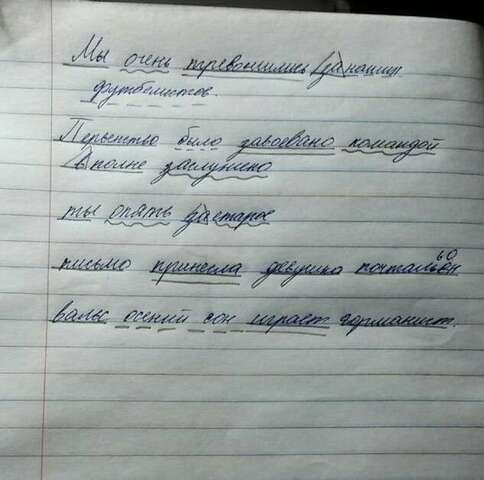 Мы очень тревожились (за наших
футболистов.
Первенство было завоёвано командой
(вполне заслужено
ты опять (застарое
письмо принесла девушка почтальон
вальс осений сон играет гармонист.